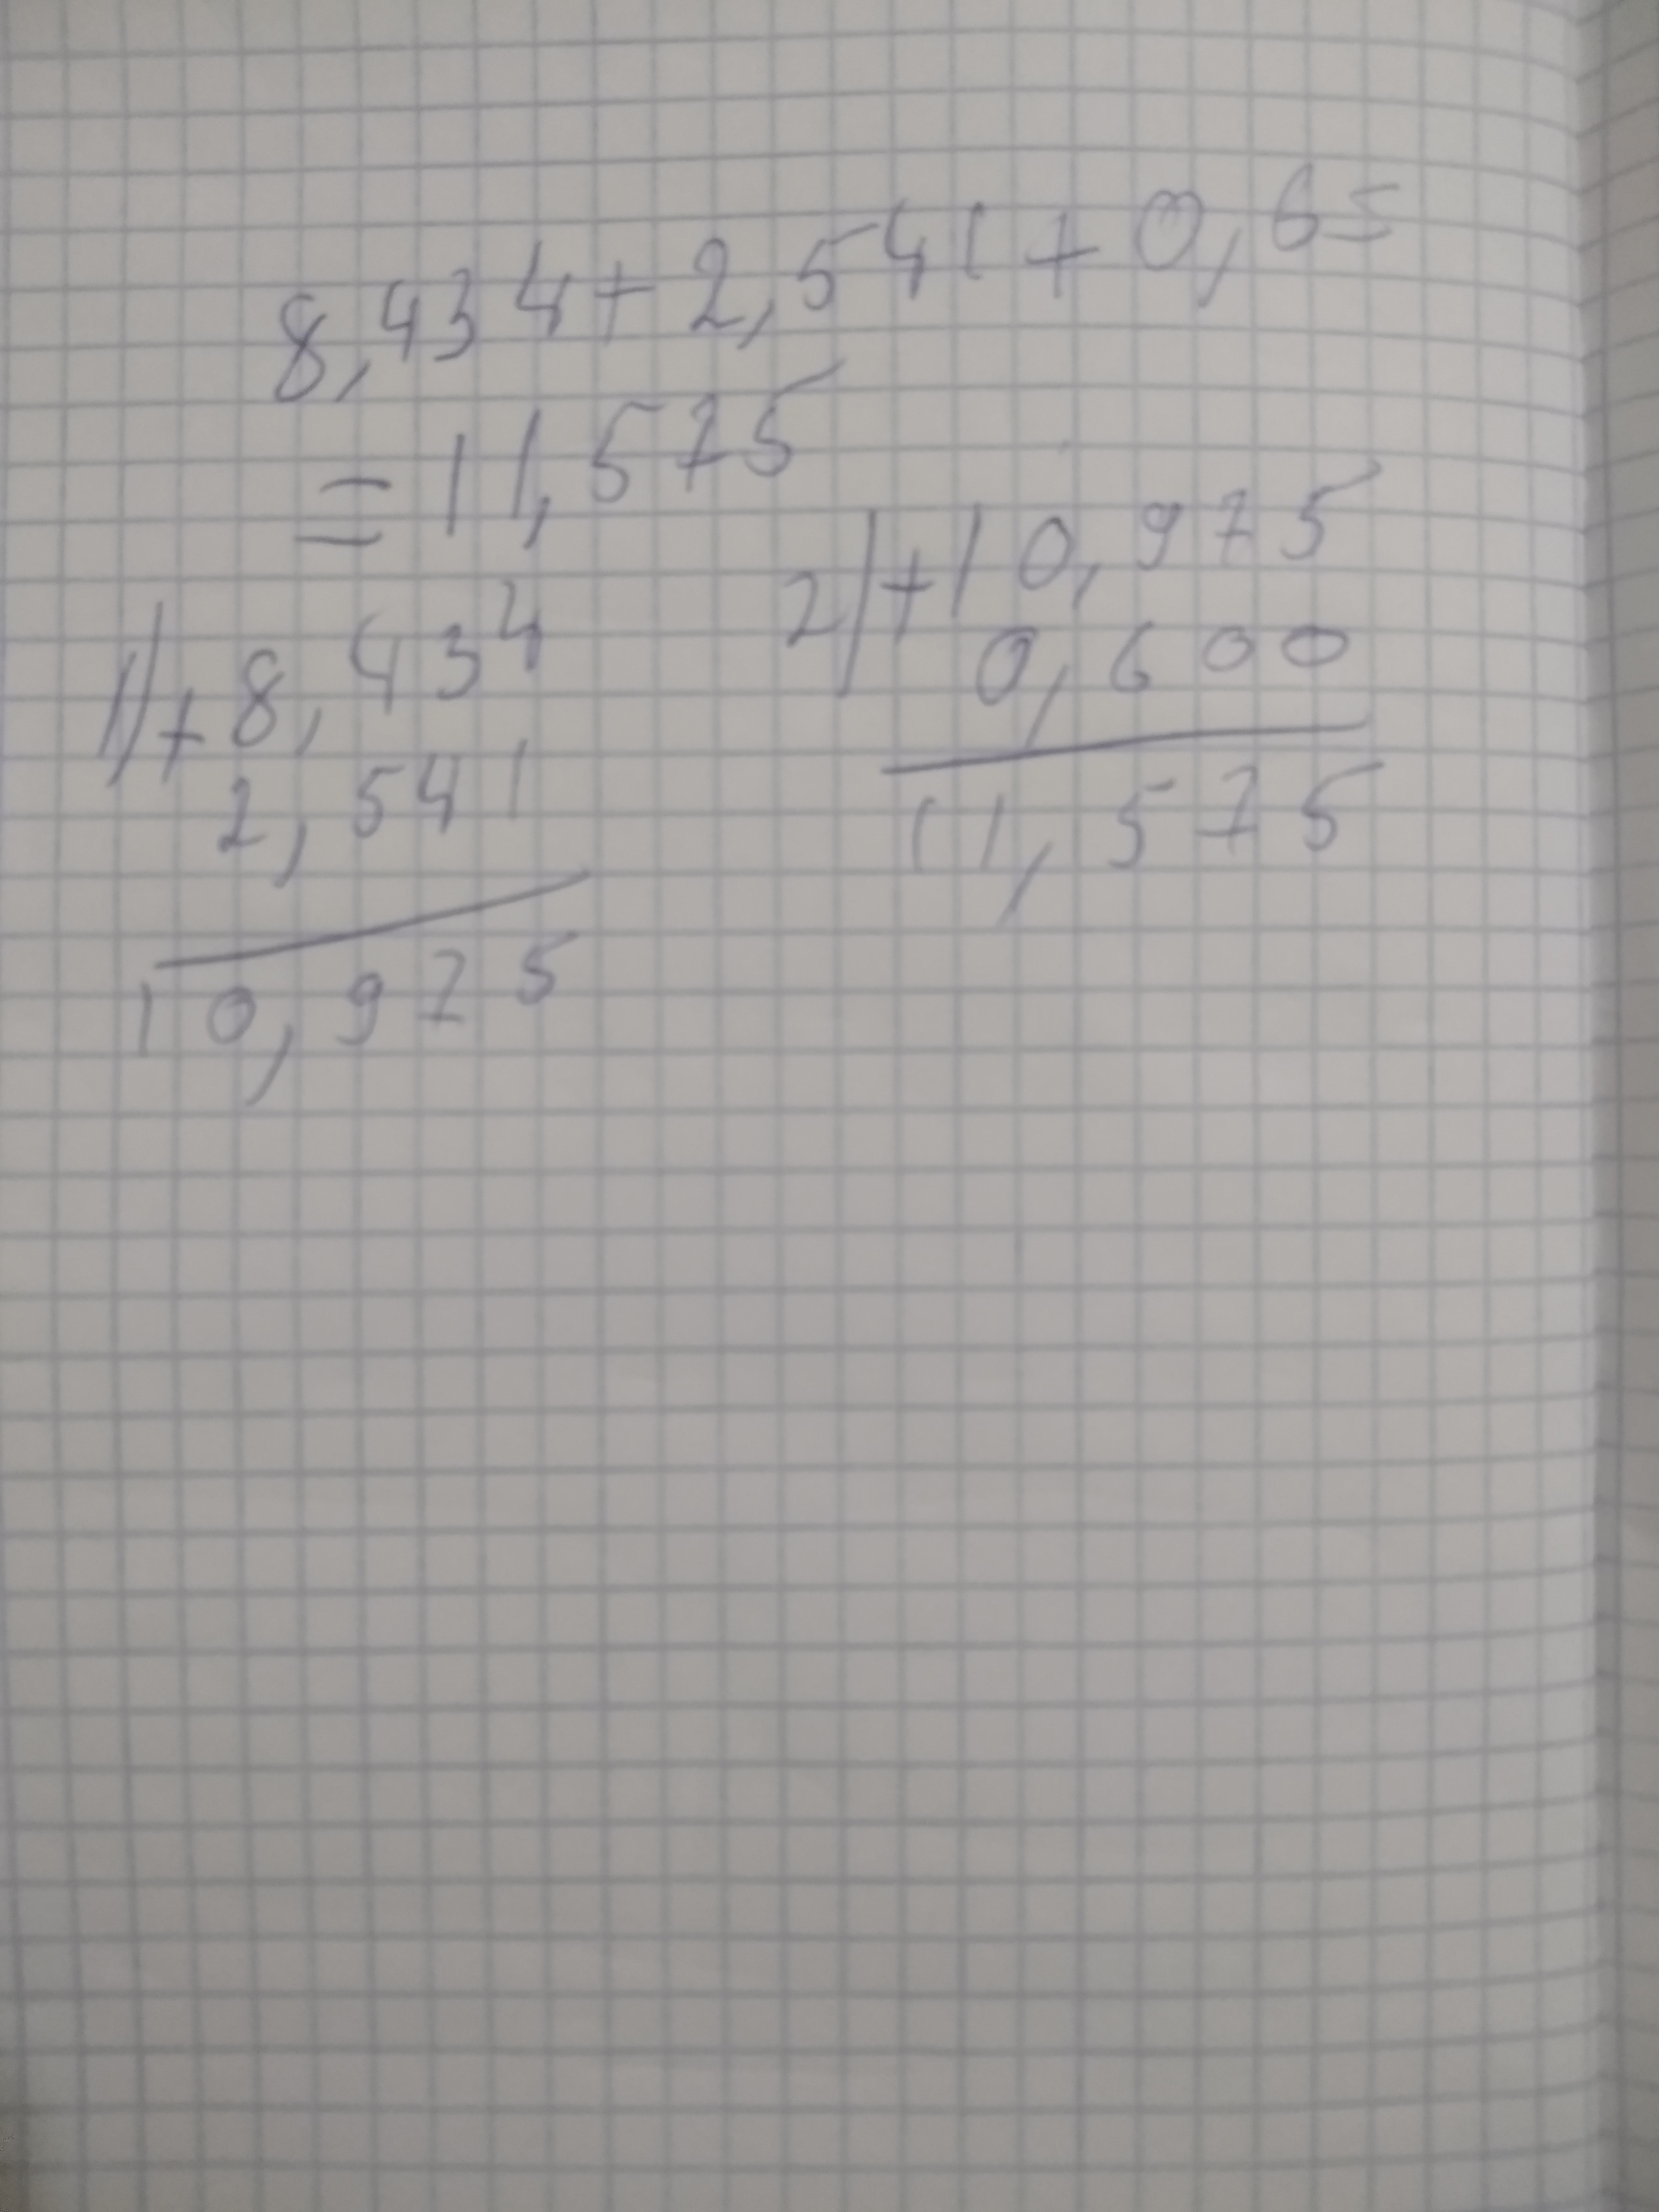 8,434+2,541+0,6=
=11,575
1)+8,434
2,541
10,975
2)+10,975
0,600
11,575